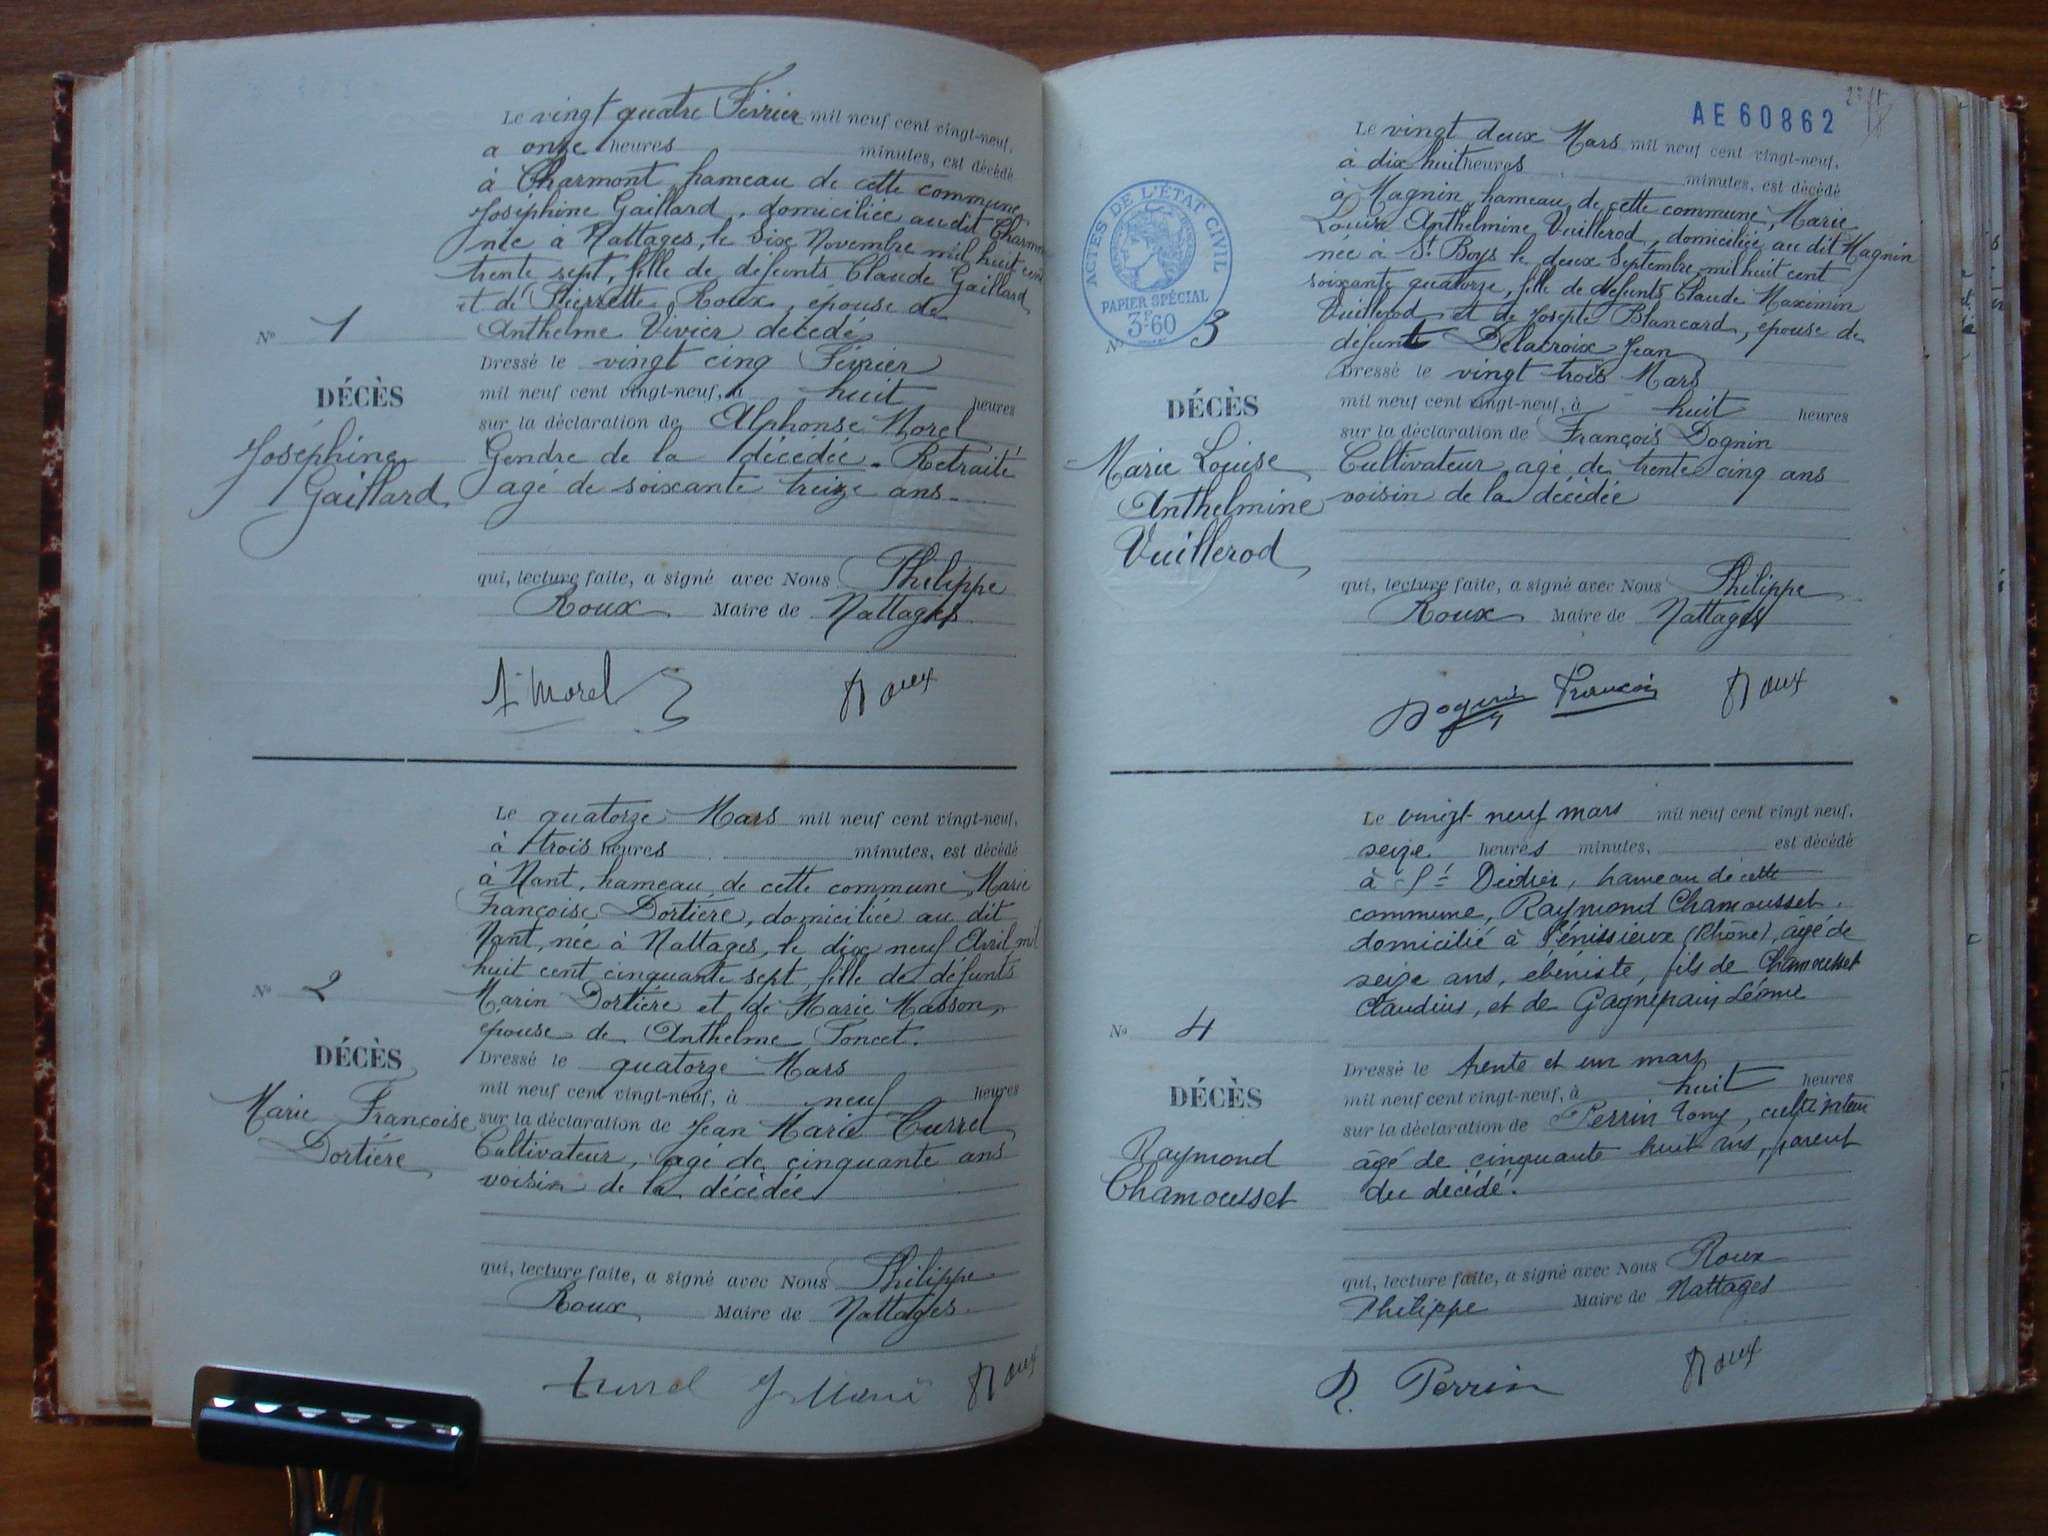 Le vingt quatre Février mil neuf cent vingt-neuf,
a onze heures minutes, est décédé
à Charmont hameau de cette commune
Joséphine Gaillard, domiciliée au dit
née à Nattages, le six Novembre mil huit cent
trente sept, fille de défunts Claude Gaillard
et de Pierrette Roux, épouse de
Anthelme Vivier décédé
No 1
DÉCÈS
Joséphine
Gaillard
Dressé le vingt cinq Février
mil neuf cent vingt-neuf, à huit heures
sur la déclaration de Alphonse Morel
Gendre de la décédée. Retraité
agé de soixante treize ans.
qui, lecture faite, a signé avec Nous Philippe
Roux Maire de Nattages
A. Morel Roux
Le quatorze Mars mil neuf cent vingt-neuf,
à trois heures minutes, est décédé
à Nant, hameau de cette commune, Marie
Françoise Dortière, domiciliée au dit
Nant, née à Nattages, le dix neuf Avril mil
huit cent cinquante sept, fille de défunts
Marin Dortière et de Marie Masson,
épouse de Anthelme Poncet.
No 2
DÉCÈS
Marie Françoise
Dortière
Dressé le quatorze Mars
mil neuf cent vingt-neuf, à neuf heures
sur la déclaration de Jean Marie Currel
Cultivateur, agé de cinquante ans
voisin de la décédée
qui, lecture faite, a signé avec Nous Philippe
Roux Maire de Nattages.
Roux
AE 60862
Le vingt deux Mars mil neuf cent vingt-neuf,
à dix huit heures minutes, est décédé
à Magnin, hameau de cette commune, Marie
Louise Anthelmine Vuillerod, domiciliée au dit Magnin
née à St Boys le deux Septembre mil huit cent
soixante quatorze, fille de défunts Claude Maximin
Vuillerod et de Josepte Blancard, épouse de
défunt Delacroix Jean
ACTES DE L'ÉTAT CIVIL
PAPIER SPÉCIAL
3F60
No 3
DÉCÈS
Marie Louise
Anthelmine
Vuillerod
Dressé le vingt trois Mars
mil neuf cent vingt-neuf, à huit heures
sur la déclaration de François Dognin
Cultivateur, agé de trente cinq ans
voisin de la décédée
qui, lecture faite, a signé avec Nous Philippe
Roux Maire de Nattages
Dognin François Roux
Le vingt neuf mars mil neuf cent vingt neuf,
seize heures minutes, est décédé
à St Didier, hameau de cette
commune, Raymond Chamousset.
domicilié à Vénissieux (Rhône), âgé de
seize ans, ébéniste, fils de Chamousset
Claudius, et de Gagnepain Léonie
No 4
DÉCÈS
Raymond
Chamousset
Dressé le trente et un mars
mil neuf cent vingt-neuf, à huit heures
sur la déclaration de Perrin Tony, cultivateur
âgé de cinquante huit ans, parent
du décédé.
qui, lecture faite, a signé avec Nous Roux
Philippe Maire de Nattages
Perrin Roux